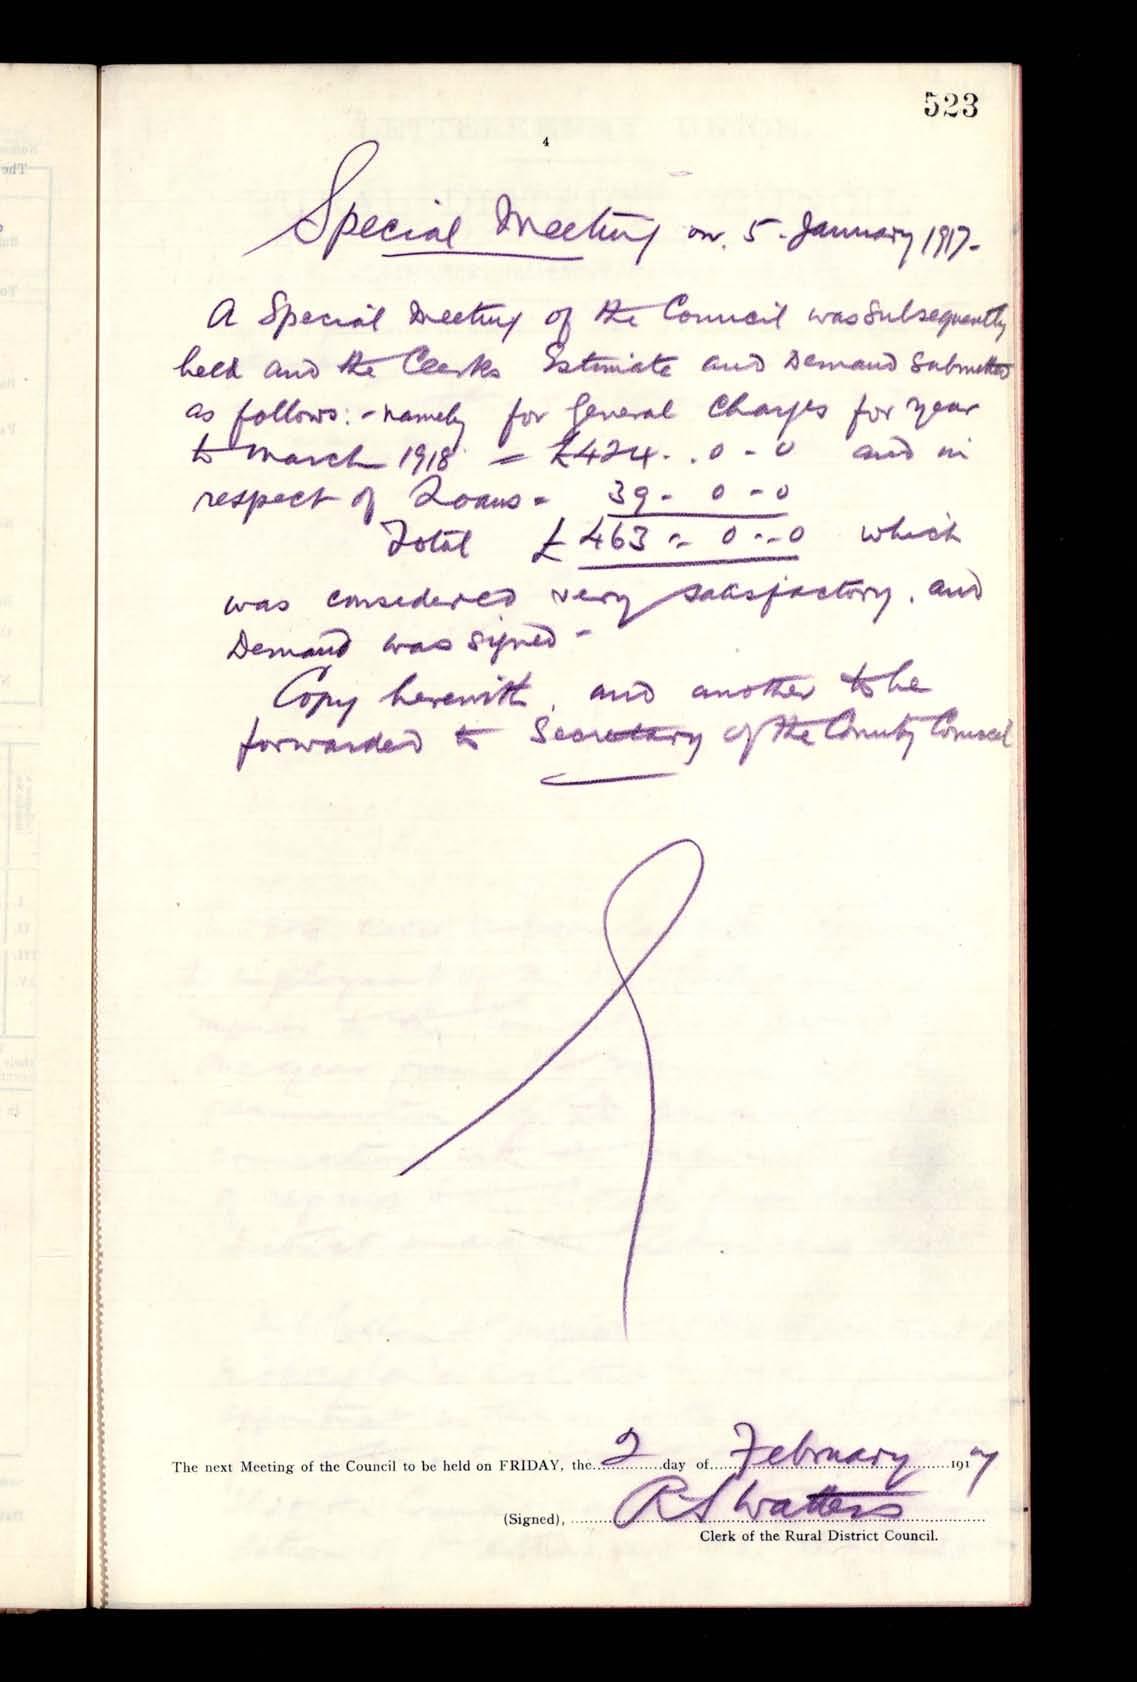 523
4
Special Meeting on 5 January 1917-
A Special Meeting of the Council was subsequently
held and the Clerks Estimate and Demand Submitted
as follows:- namely for General Charges for year
to March 1918 = £424 . . 0 - 0 and in
respect of Loans = 39 - 0 - 0
Total £463 - 0 - 0 which
was considered very satisfactory, and
Demand was signed -
Copy herewith, and another to be
forwarded to Secretary of the County Council
The next Meeting of the Council to be held on FRIDAY, the 2 day of February 1917
(Signed), R S Watters
Clerk of the Rural District Council.